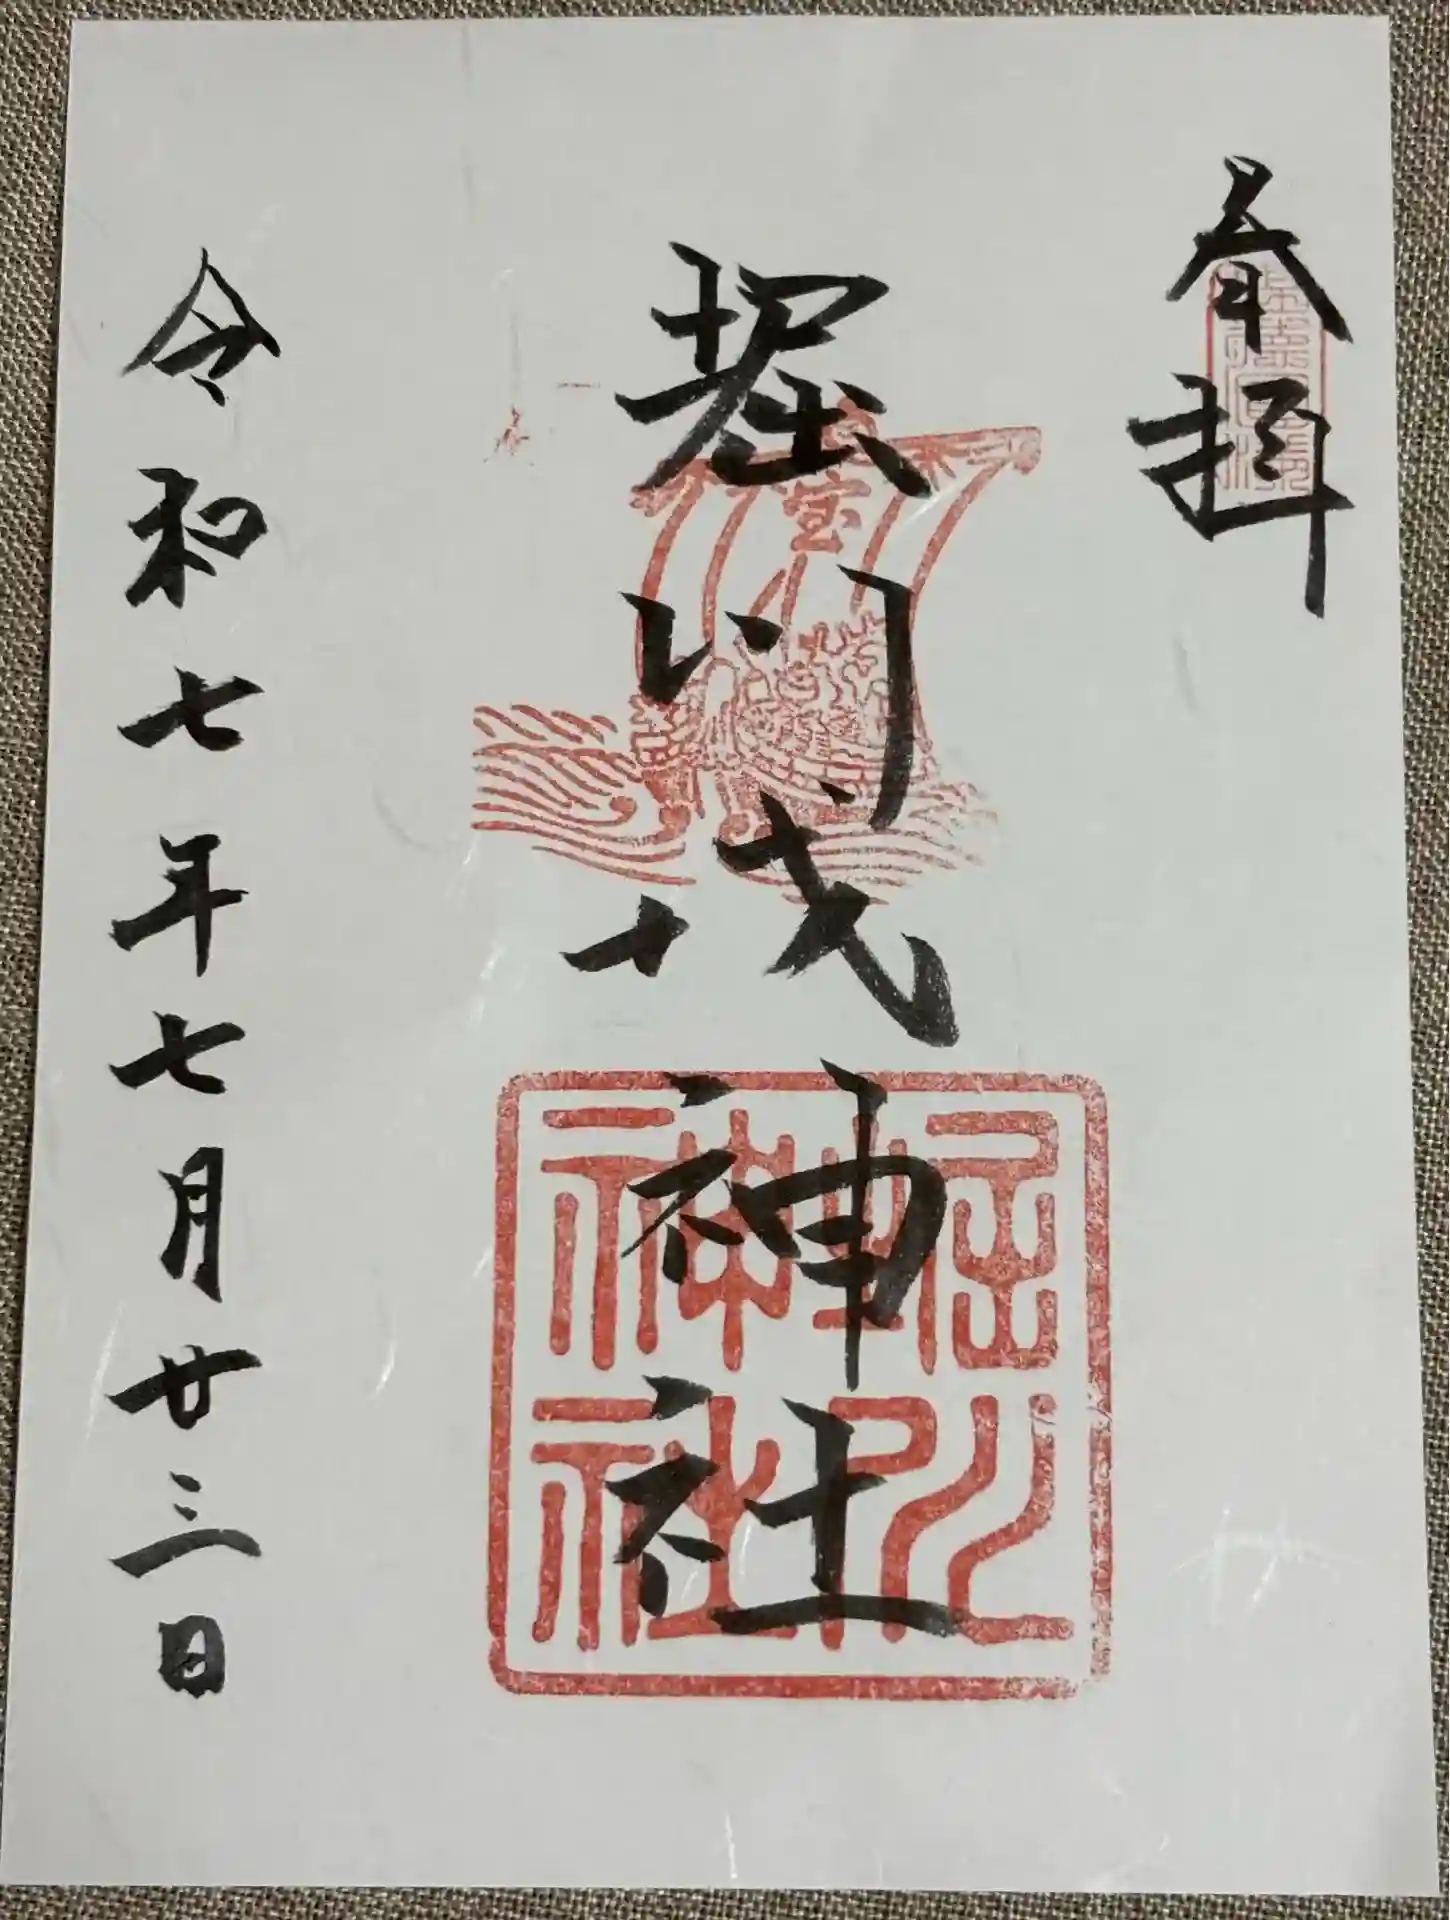 奉拝
堀川戎神社
令和七年七月廿三日
宝
堀川
神社